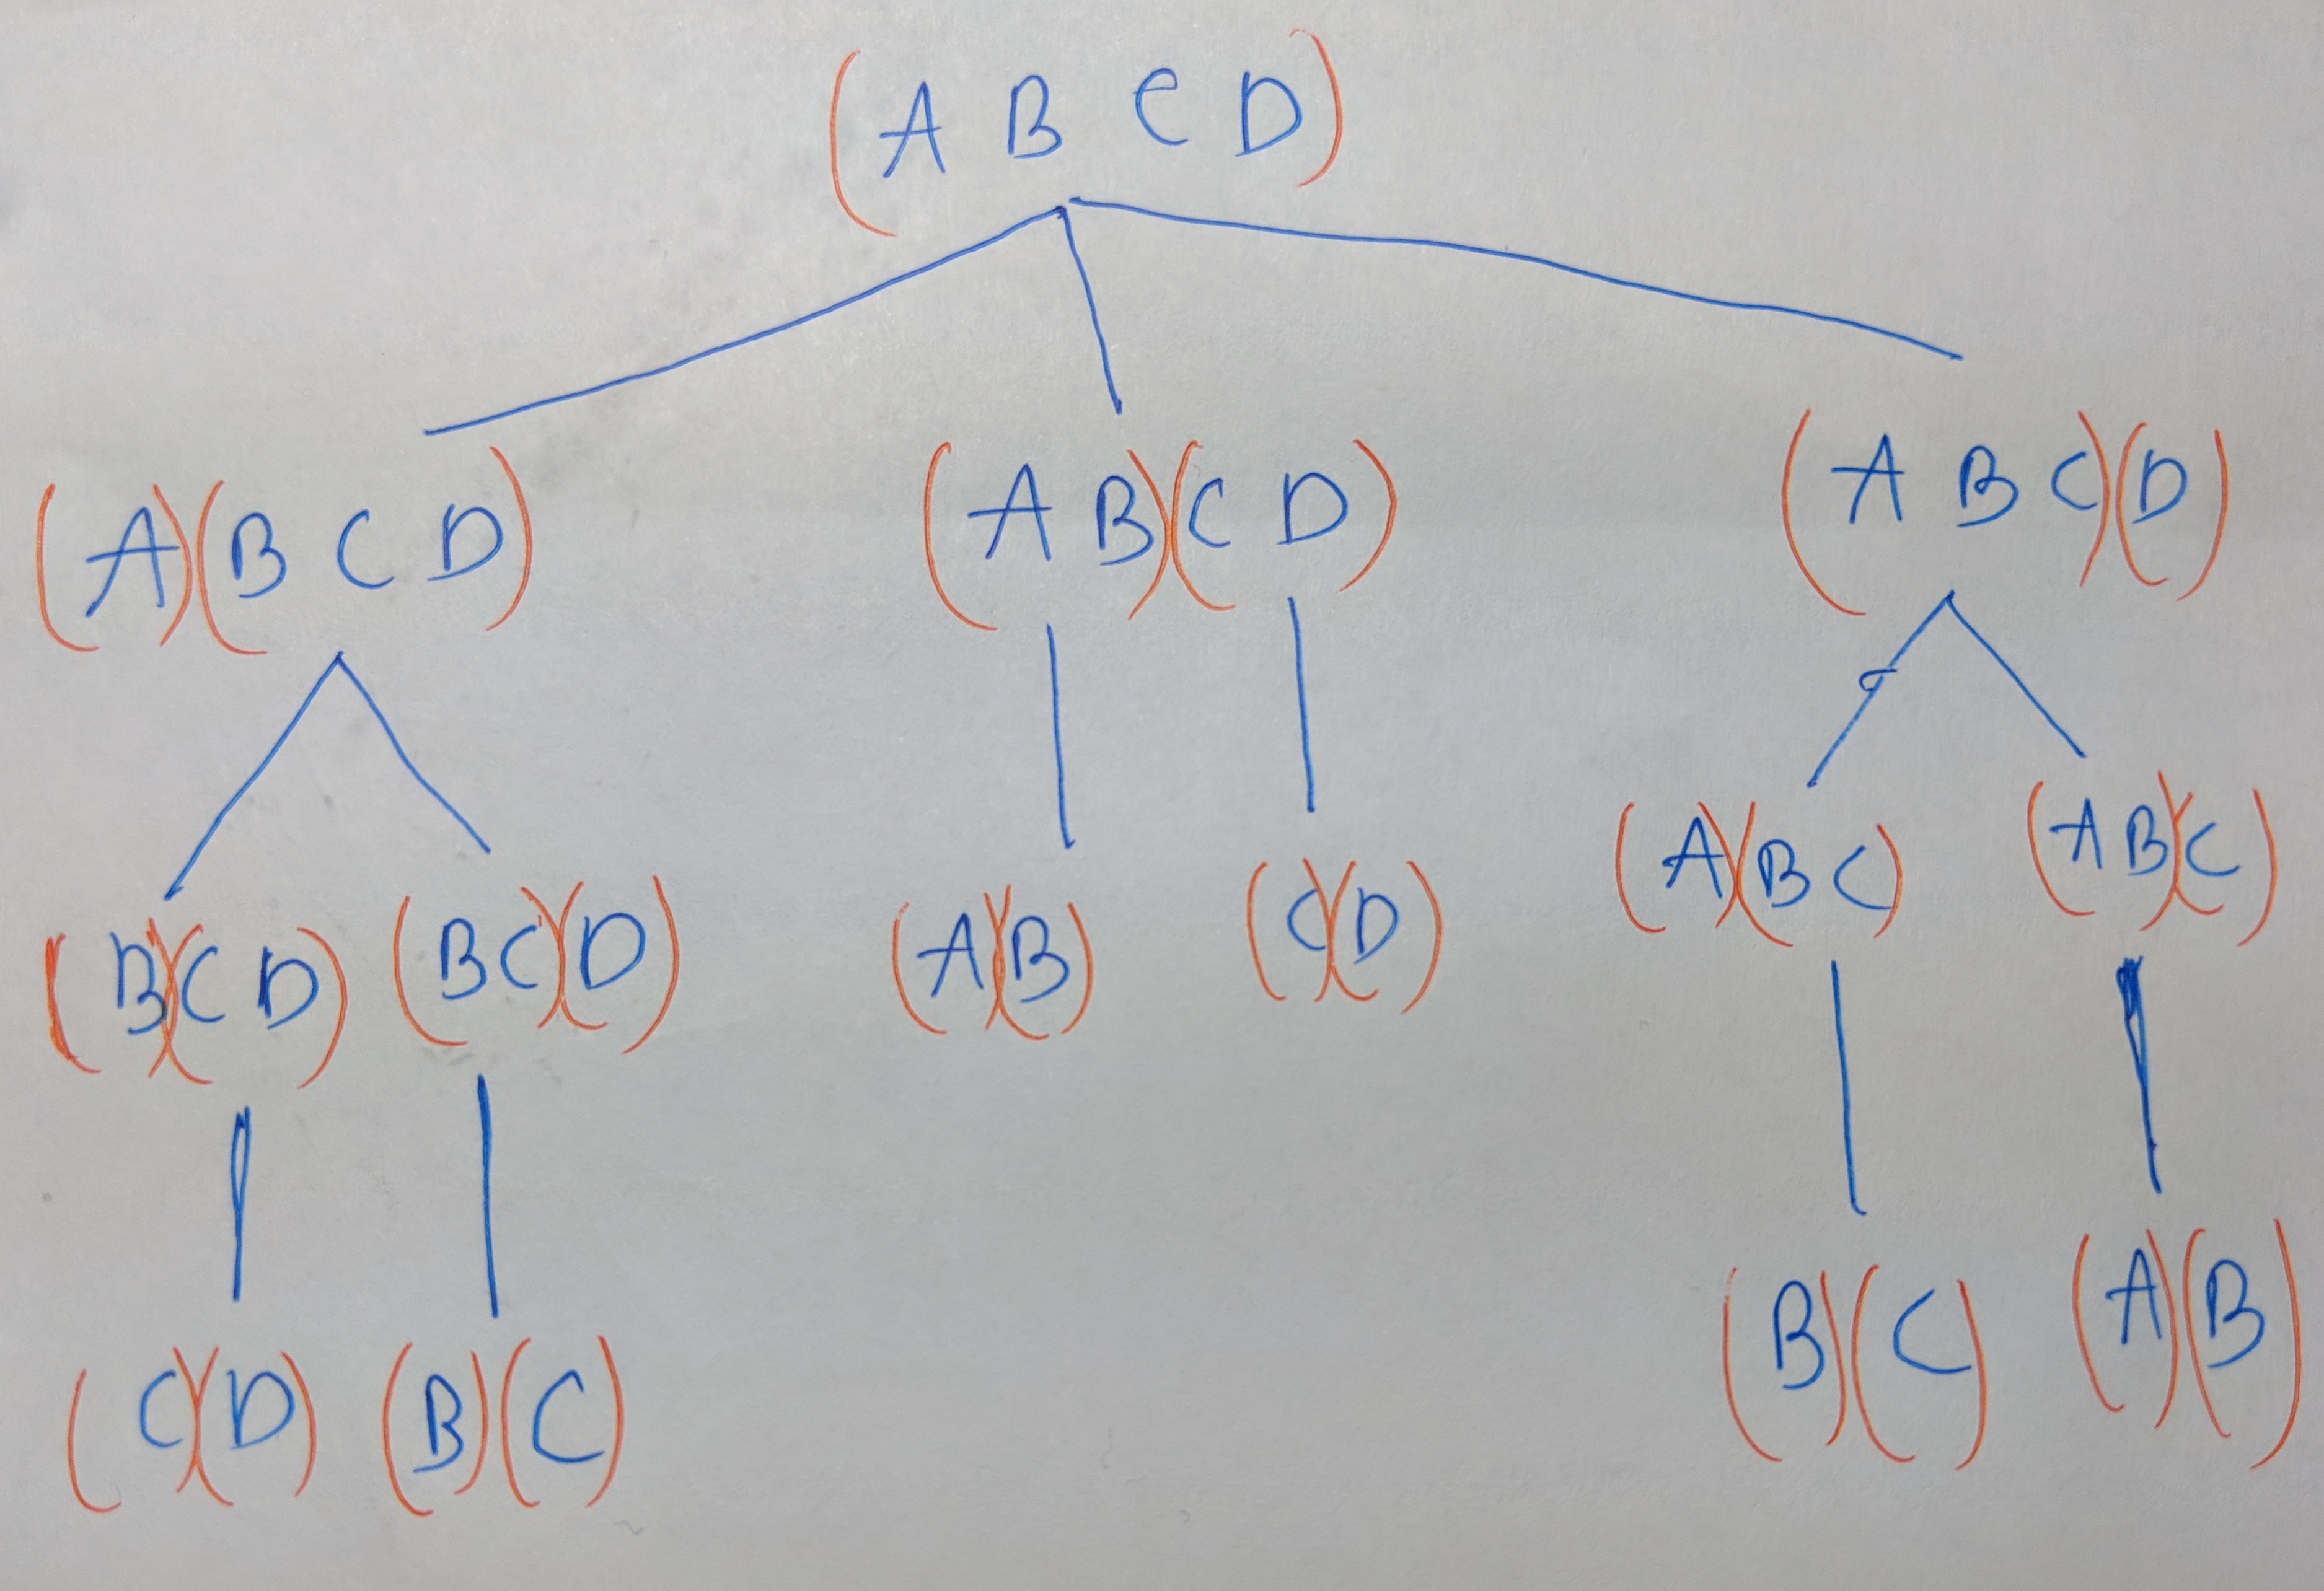 (A B C D)
(A)(B C D) (A B)(C D) (A B C)(D)
(B)(C D) (B C)(D) (A)(B) (C)(D) (A)(B C) (A B)(C)
(C)(D) (B)(C) (B)(C) (A)(B)